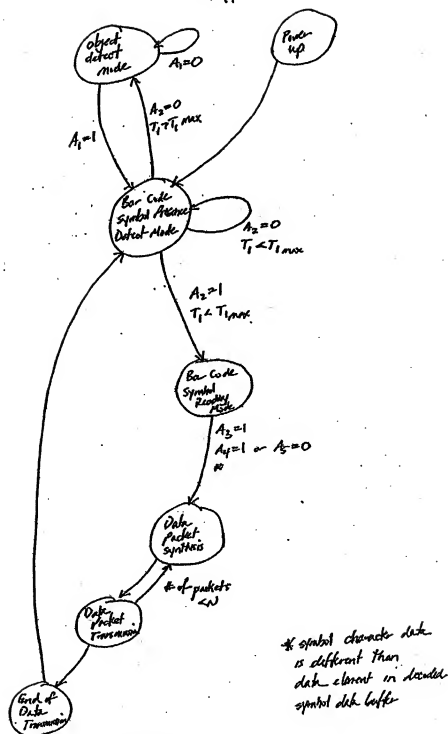 Object
detect
mode
A₁=0
Power
up
A₁=1
A₂=0
T₁>T₁ max
Bar Code
Symbol Presence
Detect Mode
A₂=0
T₁<T₁max
A₂=1
T₁<T₁max
Bar Code
Symbol
Reading
Mode
A₃=1
A₄=1 or A₅=0
*
Data
Packet
Synthesis
# of packets
<N
Data
Packet
Transmission
End of
Data
Transmission
* symbol character data
is different than
data element in decoded
symbol data buffer